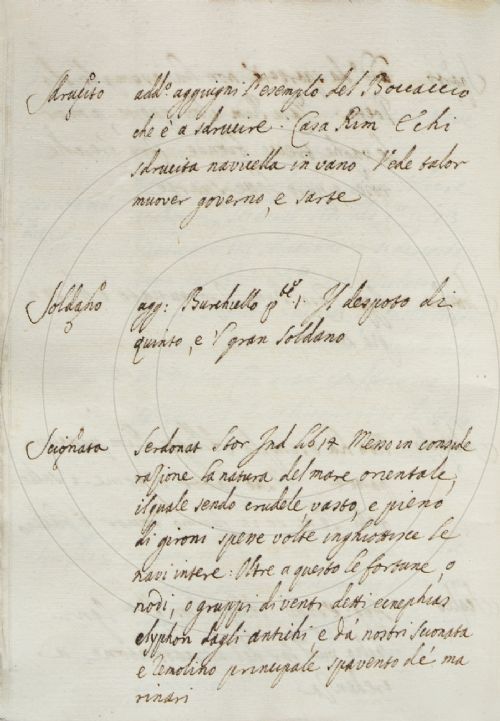 Sdrucito add.o aggiugni l'esempio del Boccaccio
che è a sdrucire. Casa Rim E chi
sdrucita navicella in vano Vede talor
muover governo, e sarte
Soldano agg: Burchiello p.te 1. Il despoto di
quinto, e 'l gran soldano
Scionata Serdonat Stor Ind lib 14 Messo in conside
razione la natura del mare orientale,
il quale sendo crudele, vasto, e pieno
di gironi spesse volte inghiottisce le
navi intere. Oltre a questo le fortune, o
nodi, o gruppi di venti detti ecnephias
e typhon dagli antichi e da nostri scionata
e remolino principale spavento de' ma
rinari